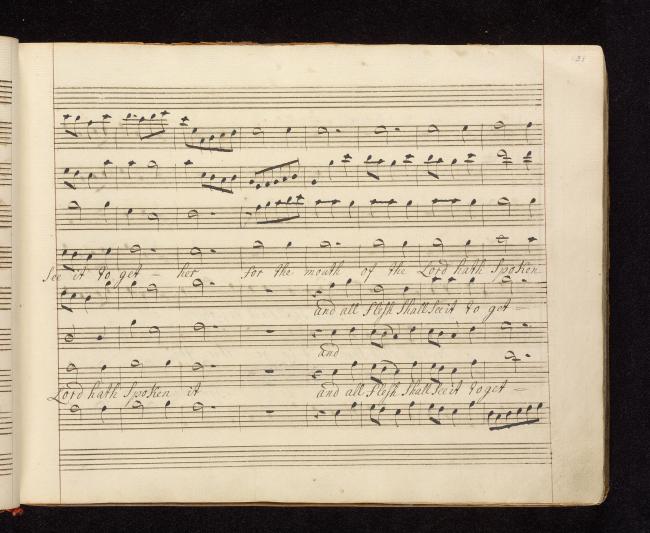 21
See it to get - her for the mouth of the Lord hath Spoken
and all Flesh Shall See it to get -
and
Lord hath Spoken it and all Flesh Shall See it to get -